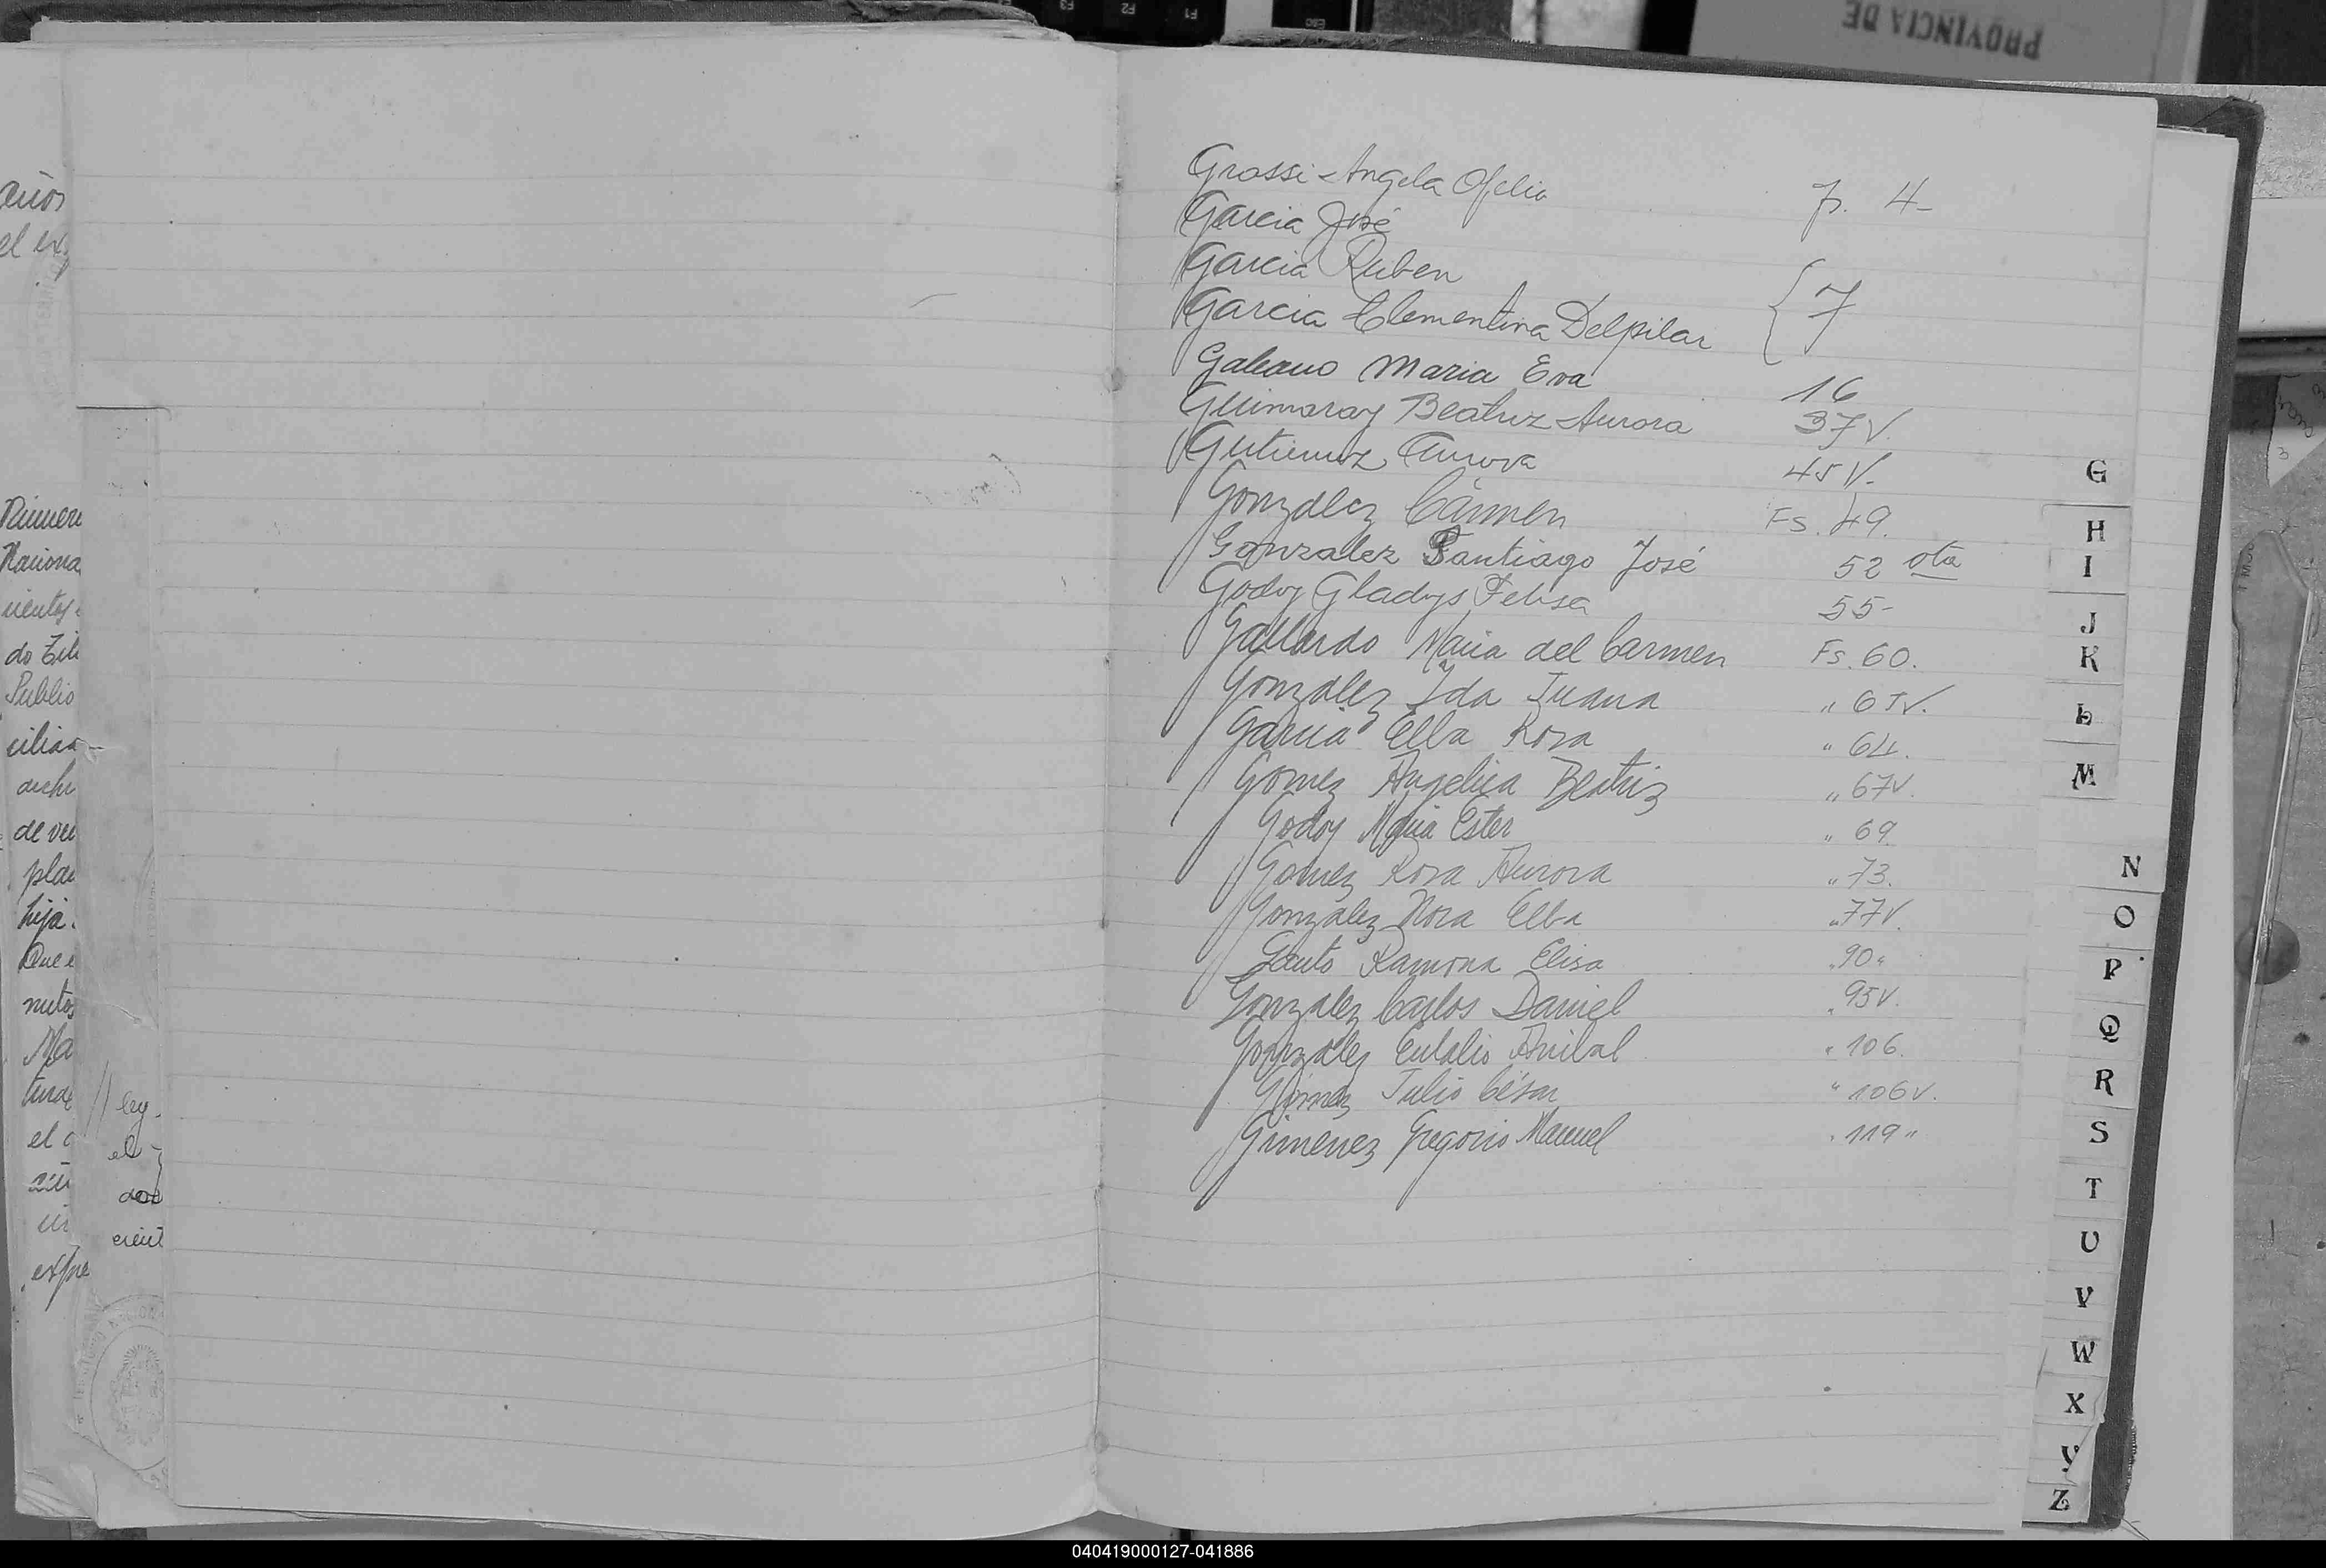 F3 F2 F1 Esc
PROVINCIA DE
Grossi Angela Ofelia fs. 4-
Garcia José
Garcia Ruben
Garcia Clementina Delpilar { 7
Galeano Maria Eva 16
Guimaray Beatriz Aurora 37 V.
Gutierrez Aurora 45 V-
González Cármen Fs. 49.
Gonzalez Santiago José 52 vta
Godoy Gladys Felisa 55-
Gallardo Maria del Carmen Fs. 60.
González Ida Juana " 61V.
Garcia Elba Rosa " 64.
Gomez Angelica Beatriz " 67V.
Godoy Maria Ester " 69.
Gomez Rosa Aurora " 73.
González Nora Elba " 77V.
Ramona Elisa " 90"
Gonzalez Carlos Daniel " 95V.
González Eulalio Anibal " 106.
Gómez Julio César " 106V.
Gimenez Gregorio Manuel " 119"
G
H
I
J
K
L
M
N
O
P
Q
R
S
T
U
V
W
X
Y
Z
el ex
do
Public
de
hija.
Que e
el
ley-
el
040419000127-041886